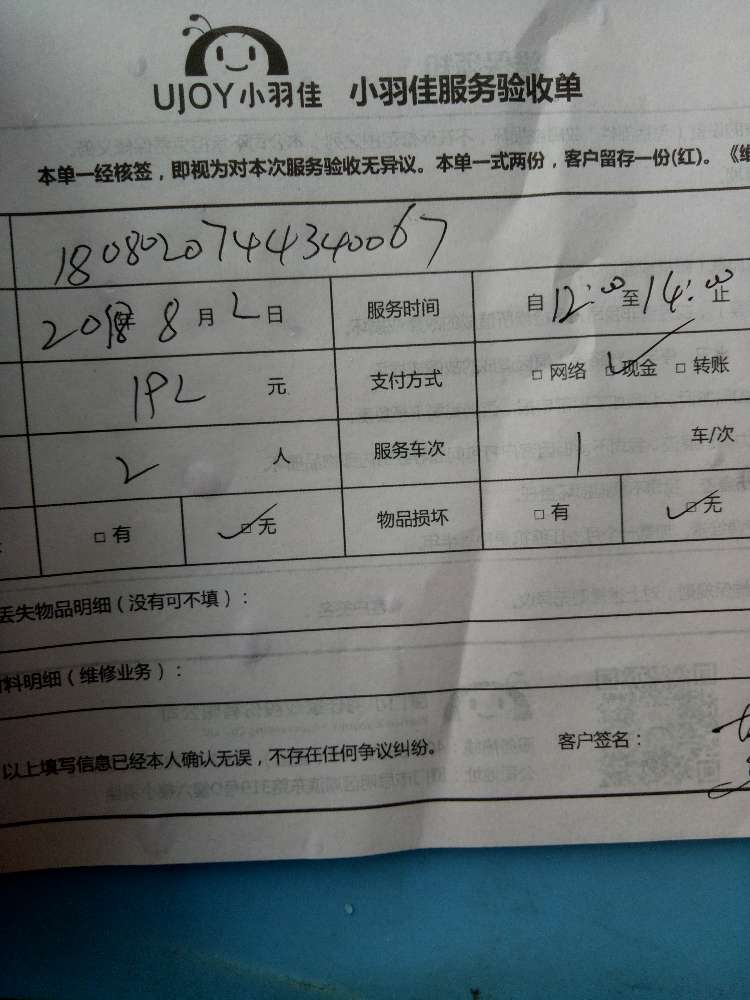 UJOY小羽佳 小羽佳服务验收单
本单一经核签，即视为对本次服务验收无异议。本单一式两份，客户留存一份(红)。《维
1808020744340067
2018年 8 月 2 日 服务时间 自 12:00 至 14:00 止
192 元 支付方式 □ 网络 ☑ 现金 □ 转账
2 人 服务车次 1 车/次
□ 有 ☑ 无 物品损坏 □ 有 ☑ 无
丢失物品明细（没有可不填）：
材料明细（维修业务）：
以上填写信息已经本人确认无误，不存在任何争议纠纷。 客户签名：